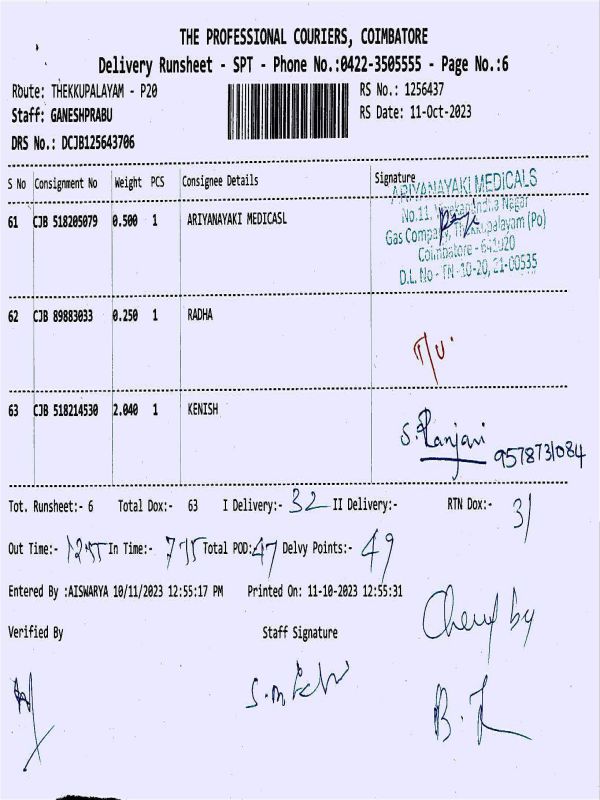 THE PROFESSIONAL COURIERS, COIMBATORE
Delivery Runsheet - SPT - Phone No.:0422-3505555 - Page No.:6
Route: THEKKUPALAYAM - P20 RS No.: 1256437
Staff: GANESHPRABU RS Date: 11-Oct-2023
DRS No.: DCJB125643706
S No Consignment No Weight PCS Consignee Details Signature
ARIYANAYAKI MEDICALS
61 CJB 518205079 0.500 1 ARIYANAYAKI MEDICASL
No.11, Nagar
Gas Company, Thekkupalayam (Po)
Coimbatore - 641020
D.L. No - TN -10-20, 21-00535
62 CJB 89883033 0.250 1 RADHA
T/U
63 CJB 518214530 2.040 1 KENISH
S. Ranjani 9578731084
Tot. Runsheet:- 6 Total Dox:- 63 I Delivery:- 32 II Delivery:- RTN Dox:- 31
Out Time:- In Time:- Total POD:- 47 Delvy Points:- 49
Entered By :AISWARYA 10/11/2023 12:55:17 PM Printed On: 11-10-2023 12:55:31
Verified By Staff Signature
by
B.